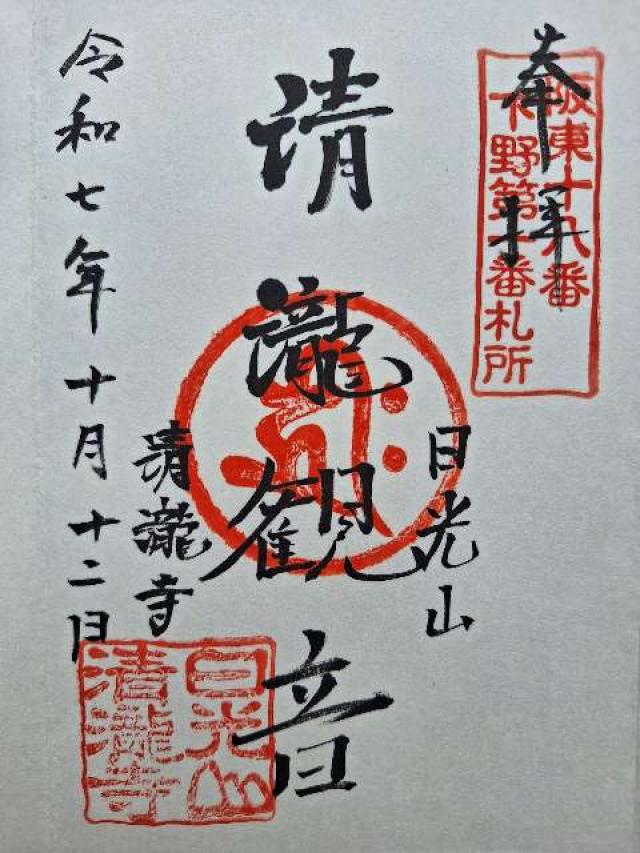 奉拝
阪東十八番
下野第一番札所
日光山
清瀧観音
清瀧寺
令和七年十月十二日
日光山
清瀧寺